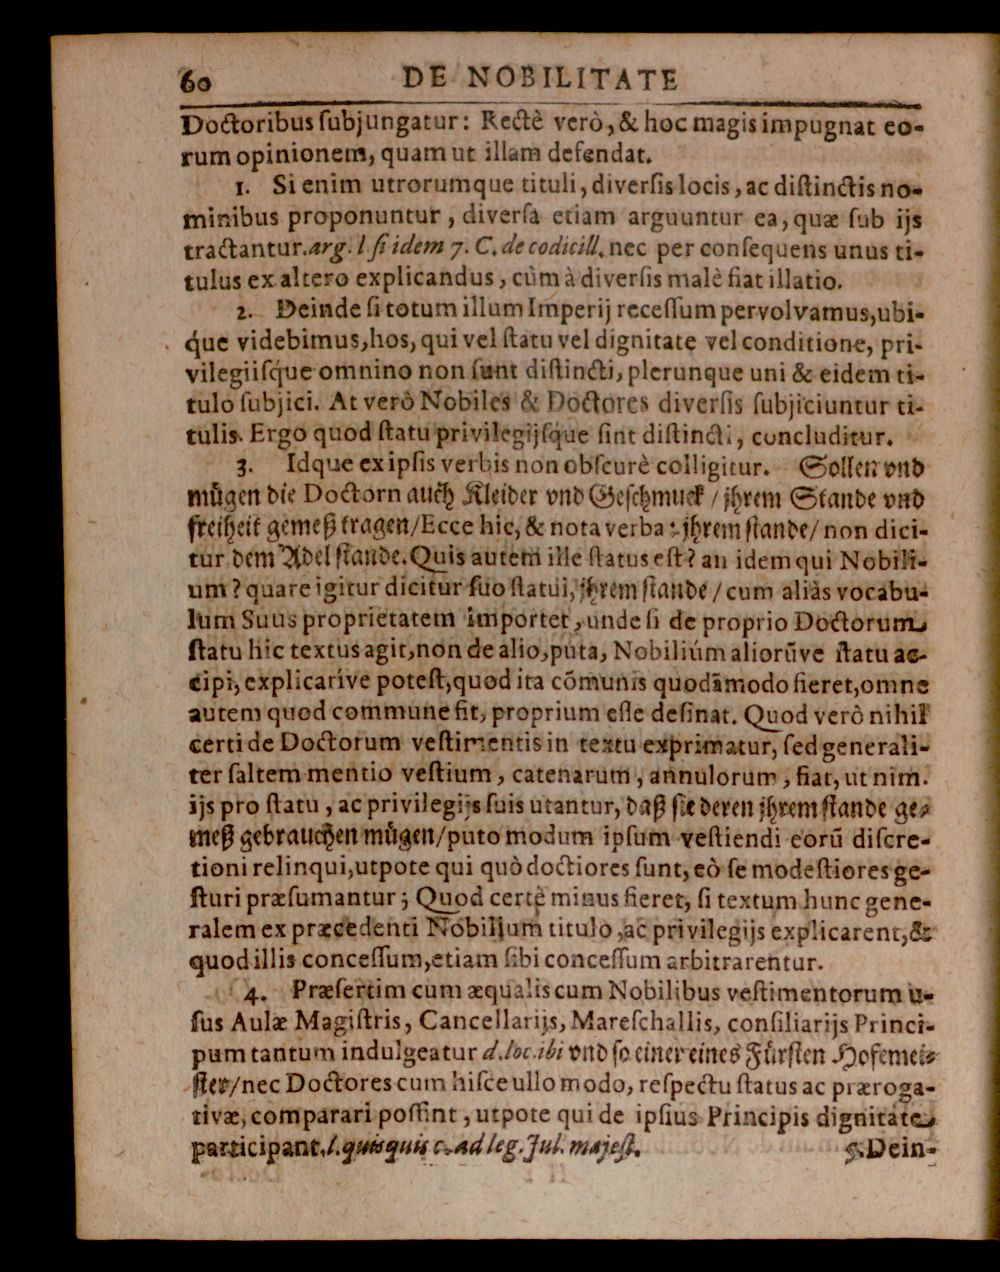 60 DE NOBILITATE
Doctoribus subjungatur: Rectè verò, & hoc magis impugnat eo-
rum opinionem, quam ut illam defendat.
1. Si enim utrorumque tituli, diversis locis, ac distinctis no-
minibus proponuntur, diversa etiam arguuntur ea, quæ sub ijs
tractantur. arg. l. si idem 7. C. de codicill. nec per consequens unus ti-
tulus ex altero explicandus, cùm à diversis malè fiat illatio.
2. Deinde si totum illum Imperij recessum pervolvamus, ubi-
q́ue videbimus, hos, qui vel statu vel dignitate vel conditione, pri-
vilegiisq́ue omnino non sunt distincti, plerunque uni & eidem ti-
tulo subjici. At verò Nobiles & Doctores diversis subjiciuntur ti-
tulis. Ergo quod statu privilegijsq́ue sint distincti, concluditur.
3. Idque ex ipsis verbis non obscurè colligitur. Sollen vnd
mügen die Doctorn auch Kleider vnd Geschmuck / jhrem Stande vnd
freiheit gemeß tragen/ Ecce hic, & nota verba: jhrem stande/ non dici-
tur dem Adel stande. Quis autem ille status est? an idem qui Nobili-
um? quare igitur dicitur suo statui, jhrem stande / cum aliàs vocabu-
lum Suus proprietatem importet, unde si de proprio Doctorum
statu hic textus agit, non de alio, puta, Nobiliúm aliorũve statu ac-
cipi, explicarive potest, quod ita cõmunis quodãmodo fieret, omne
autem quod commune fit, proprium esse desinat. Quod verò nihil
certi de Doctorum vestimentis in textu exprimatur, sed generali-
ter saltem mentio vestium, catenarum, annulorum, fiat, ut nim.
ijs pro statu, ac privilegijs suis utantur, daß sie deren jhrem stande ge-
meß gebrauchen mügen/ puto modum ipsum vestiendi eorũ discre-
tioni relinqui, utpote qui quò doctiores sunt, eò se modestiores ge-
sturi præsumantur; Quod certè minus fieret, si textum hunc gene-
ralem ex præcedenti Nobilium titulo, ac privilegijs explicarent, &
quod illis concessum, etiam sibi concessum arbitrarentur.
4. Præsertim cum æqualis cum Nobilibus vestimentorum u-
sus Aulæ Magistris, Cancellarijs, Mareschallis, consiliarijs Princi-
pum tantum indulgeatur d. loc. ibi vnd so einer eines Fürsten Hofemei-
ster/ nec Doctores cum hisce ullo modo, respectu status ac præroga-
tivæ, comparari possint, utpote qui de ipsius Principis dignitate
participant. l. quisquis c. ad leg. Jul. majest.
5. Dein-